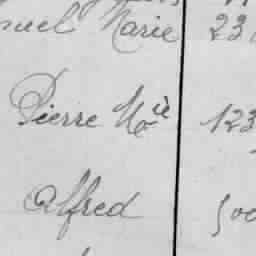 nuel Marie 23
Pierre Mie 123
Alfred 500